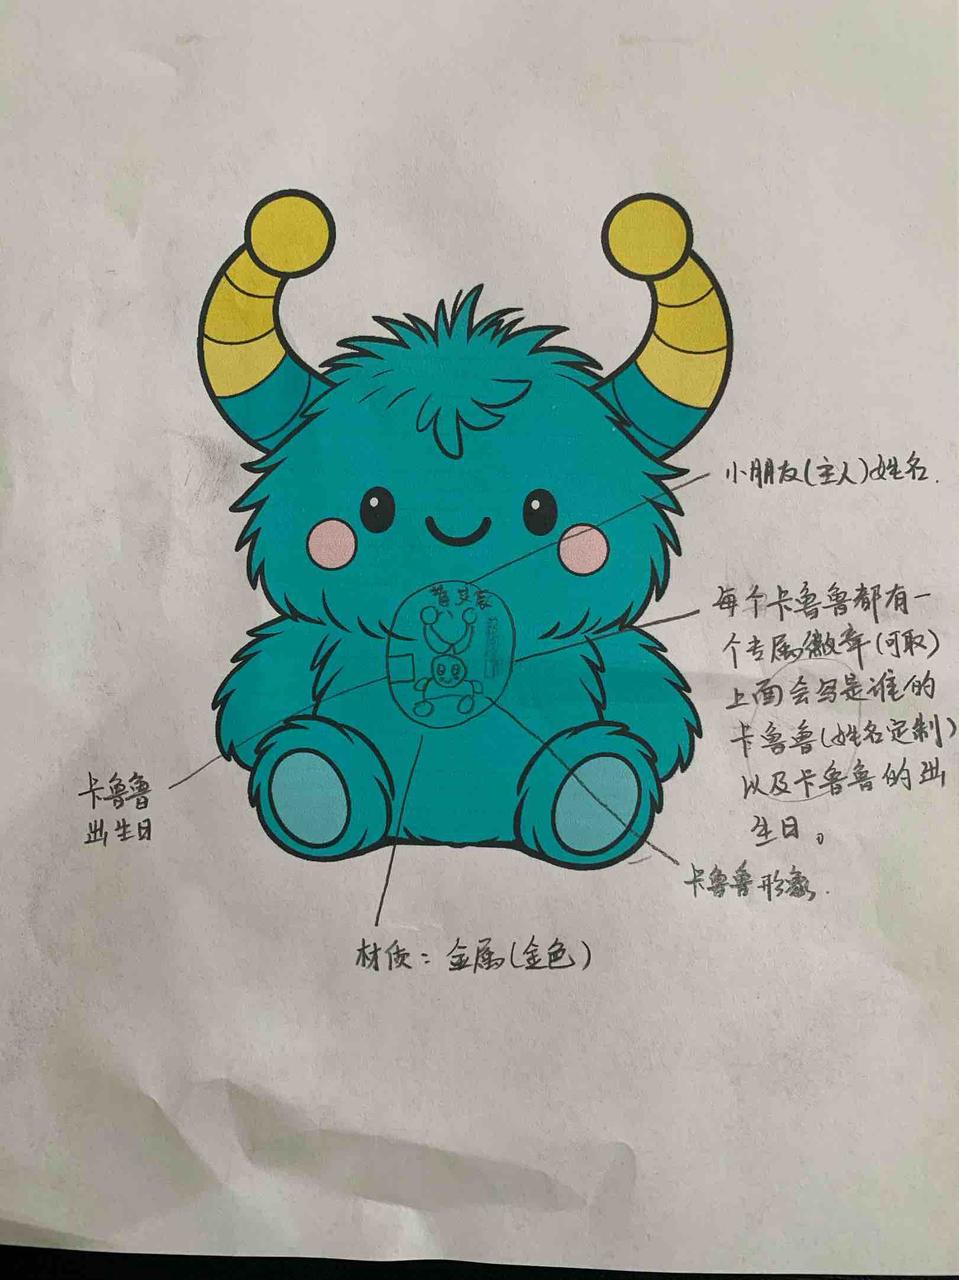 小朋友(主人)姓名.
每个卡鲁鲁都有一
个专属徽章(可取)
上面会写是谁的
卡鲁鲁(姓名定制)
以及卡鲁鲁的出
生日。
卡鲁鲁
出生日
卡鲁鲁形象.
材质：金属(金色)